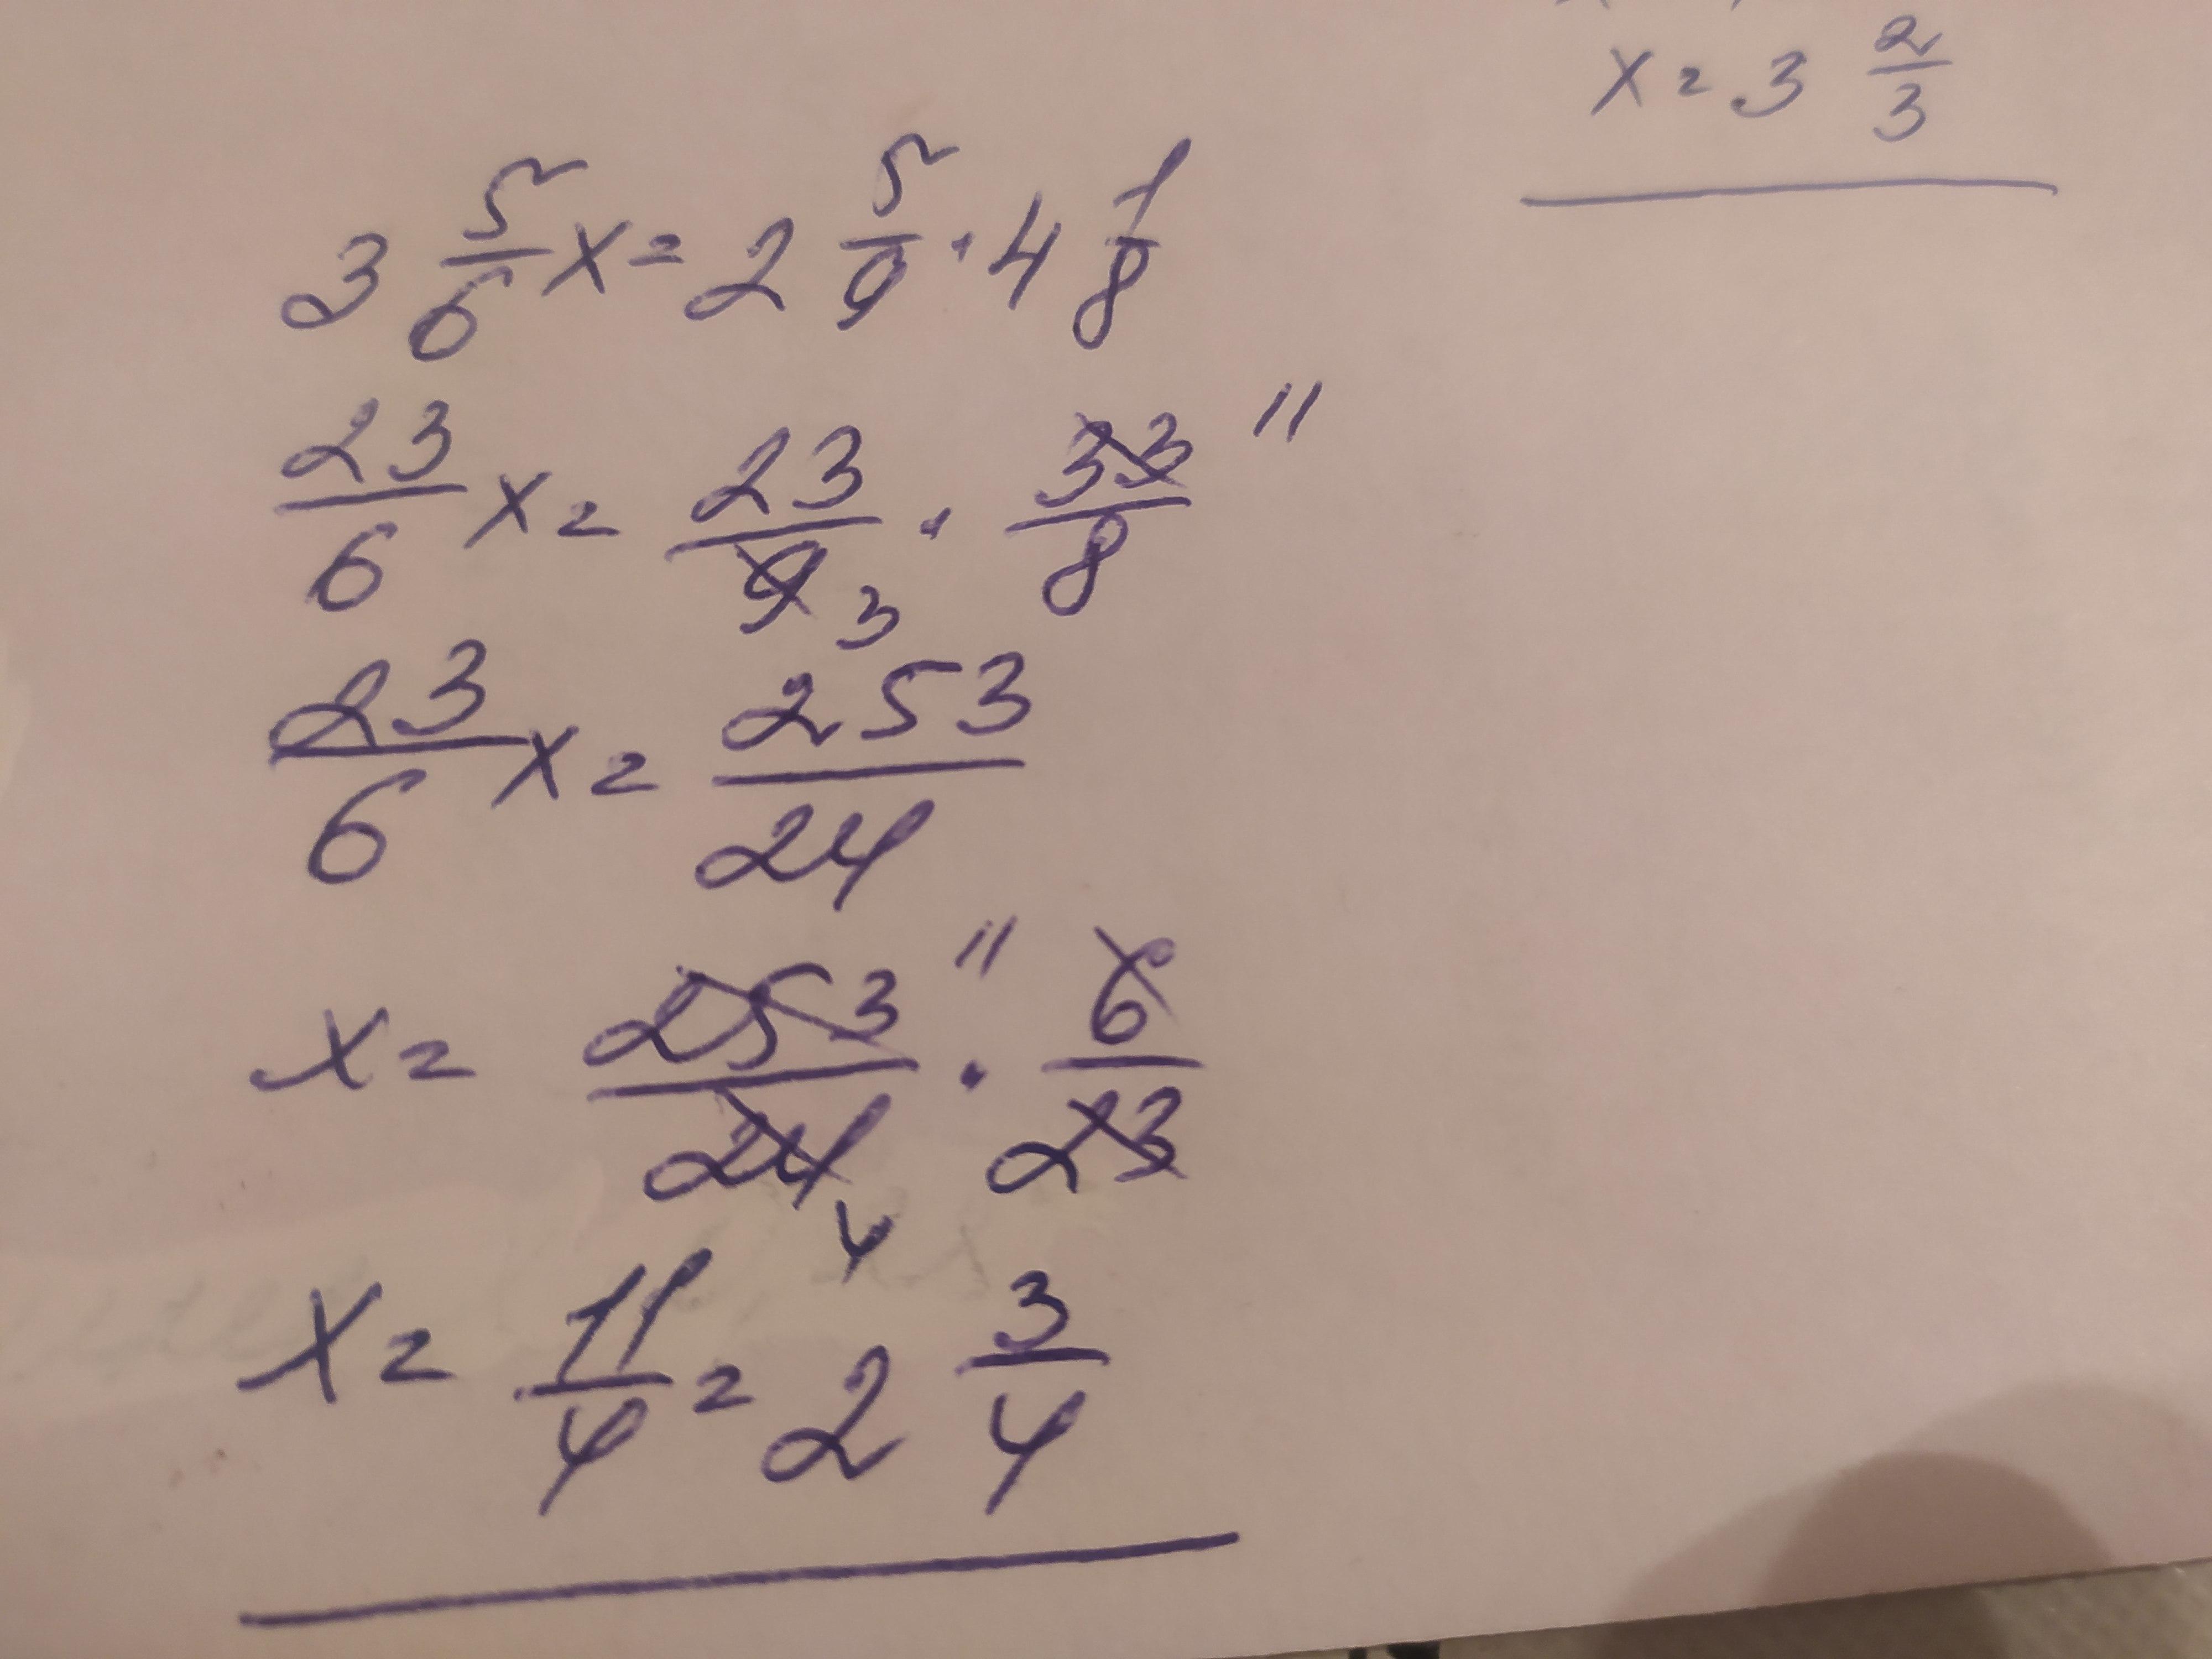 x = 3 2/3
3 5/6 x = 2 5/9 · 4 1/8
23/6 x = 23/9 3 · 33/8 11
23/6 x = 253/24
x = 253/24 11 4 · 6/23
x = 11/4 = 2 3/4